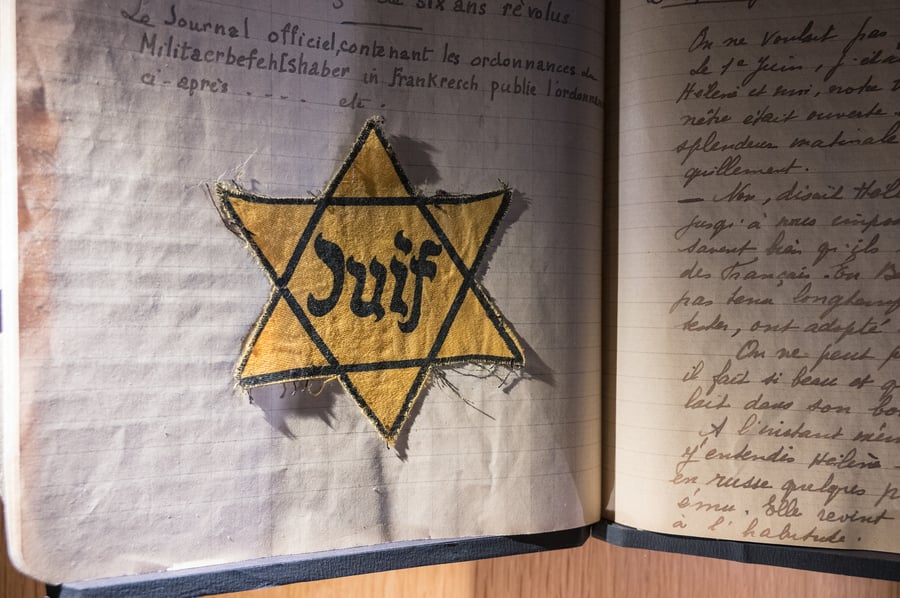 six ans révolus
Le Journal officiel, contenant les ordonnances du
Militaerbefehlshaber in Frankreich publie l'ordonnan
ci-après . . . . etc.
Juif
On ne voulait pas
Le 1er Juin, j'étai
Hélène et moi, notre
nêtre était ouverte
splendeur matinale
quillement.
— Non, disait Hél
jusqu'à nous impos
savent bien qu'ils
des Français. En Be
pas tenu longtemps
tester, ont adopté
On ne peut p
il fait si beau et q
lait dans son bo
A l'instant mêm
j'entendis Hélène
en russe quelques p
ému. Elle revint
à l'habitude.